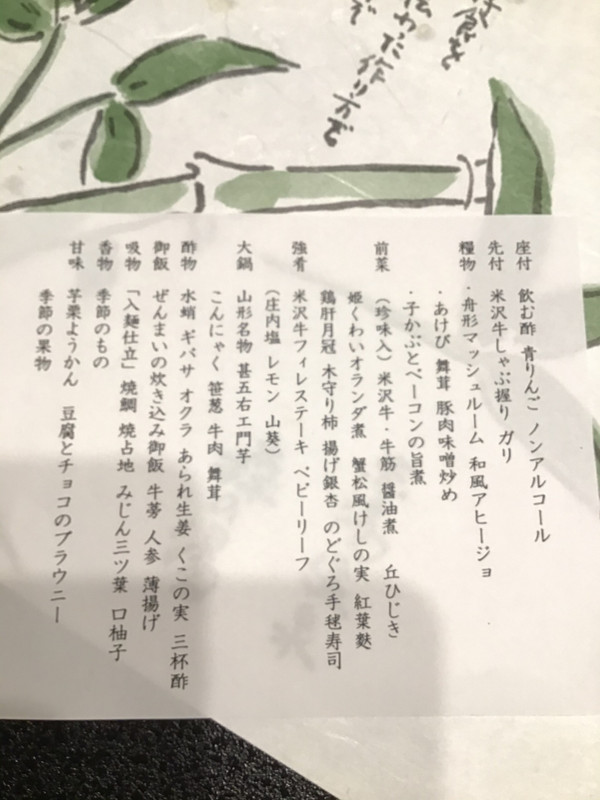 食を
伝わった作り方で
で
座付　飲む酢　青りんご　ノンアルコール
先付　米沢牛しゃぶ握り　ガリ
糧物　・舟形マッシュルーム　和風アヒージョ
・あけび　舞茸　豚肉味噌炒め
・子かぶとベーコンの旨煮
前菜　（珍味入）米沢牛・牛筋　醤油煮　丘ひじき
姫くわいオランダ煮　蟹松風けしの実　紅葉麩
鶏肝月冠　木守り柿　揚げ銀杏　のどぐろ手毬寿司
強肴　米沢牛フィレステーキ　ベビーリーフ
（庄内塩　レモン　山葵）
大鍋　山形名物　甚五右エ門芋
こんにゃく　笹葱　牛肉　舞茸
酢物　水蛸　ギバサ　オクラ　あられ生姜　くこの実　三杯酢
御飯　ぜんまいの炊き込み御飯　牛蒡　人参　薄揚げ
吸物　「入麺仕立」焼鯛　焼占地　みじん三ツ葉　口柚子
香物　季節のもの
甘味　芋栗ようかん　豆腐とチョコのブラウニー
季節の果物